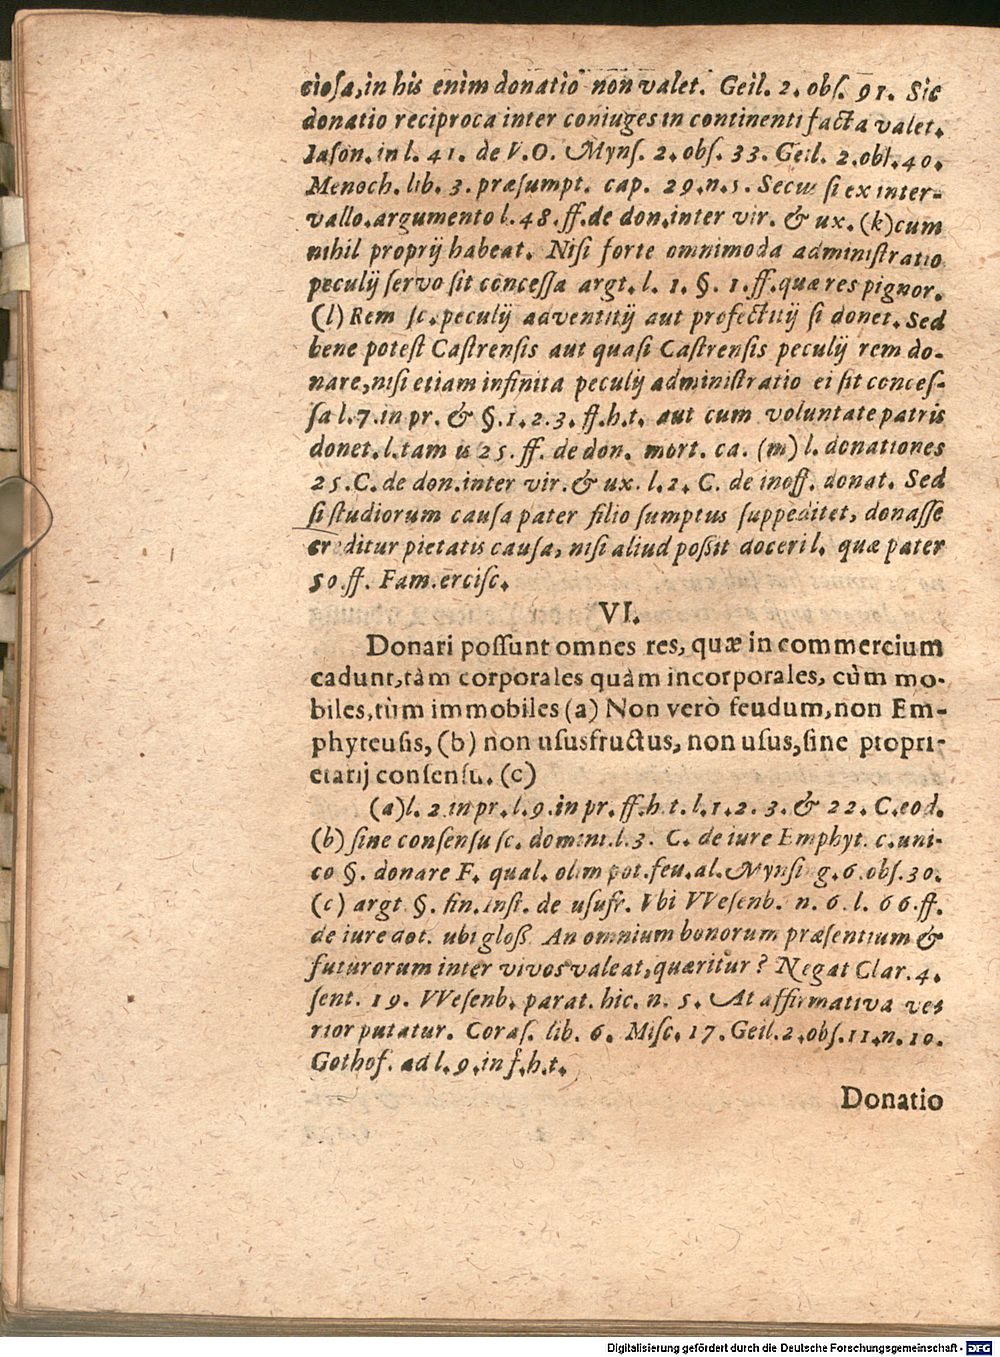 ciosa, in his enim donatio non valet. Geil. 2. obs. 91. Sic
donatio reciproca inter coniuges in continenti facta valet.
Iason. in l. 41. de V.O. Myns. 2. obs. 33. Geil. 2. obs. 40.
Menoch. lib. 3. præsumpt. cap. 29. n. 5. Secus si ex inter-
vallo. argumento l. 48. ff. de don. inter vir. & ux. (k) cum
nihil proprij habeat. Nisi forte omnimoda administratio
peculij servo sit concessa argt. l. 1. §. 1. ff. quæ res pignor.
(l) Rem sc. peculij adventitij aut profectitij si donet. Sed
bene potest Castrensis aut quasi Castrensis peculij rem do-
nare, nisi etiam infinita peculij administratio ei sit conces-
sa l. 7. in pr. & §. 1. 2. 3. ff. h. t. aut cum voluntate patris
donet. l. tam is 25. ff. de don. mort. ca. (m) l. donationes
25. C. de don. inter vir. & ux. l. 2. C. de inoff. donat. Sed
si studiorum causa pater filio sumptus suppeditet, donasse
creditur pietatis causa, nisi aliud possit doceri l. quæ pater
50. ff. Fam. ercisc.
VI.
Donari possunt omnes res, quæ in commercium
cadunt, tàm corporales quàm incorporales, cùm mo-
biles, tùm immobiles (a) Non verò feudum, non Em-
phyteusis, (b) non ususfructus, non usus, sine propri-
etarij consensu. (c)
(a) l. 2. in pr. l. 9. in pr. ff. h. t. l. 1. 2. 3. & 22. C. eod.
(b) sine consensu sc. domini. l. 3. C. de iure Emphyt. c. uni-
co §. donare F. qual. olim pot. feu. al. Mynsing. 6. obs. 30.
(c) argt §. fin. Inst. de usufr. Vbi VVesenb. n. 6. l. 66. ff.
de iure dot. ubi gloss. An omnium bonorum præsentium &
futurorum inter vivos valeat, quæritur? Negat Clar. 4.
sent. 19. VVesenb. parat. hic. n. 5. At affirmativa ve-
rior putatur. Coras. lib. 6. Misc. 17. Geil. 2. obs. 11. n. 10.
Gothof. ad l. 9. in f. h. t.
Donatio
Digitalisierung gefördert durch die Deutsche Forschungsgemeinschaft - DFG